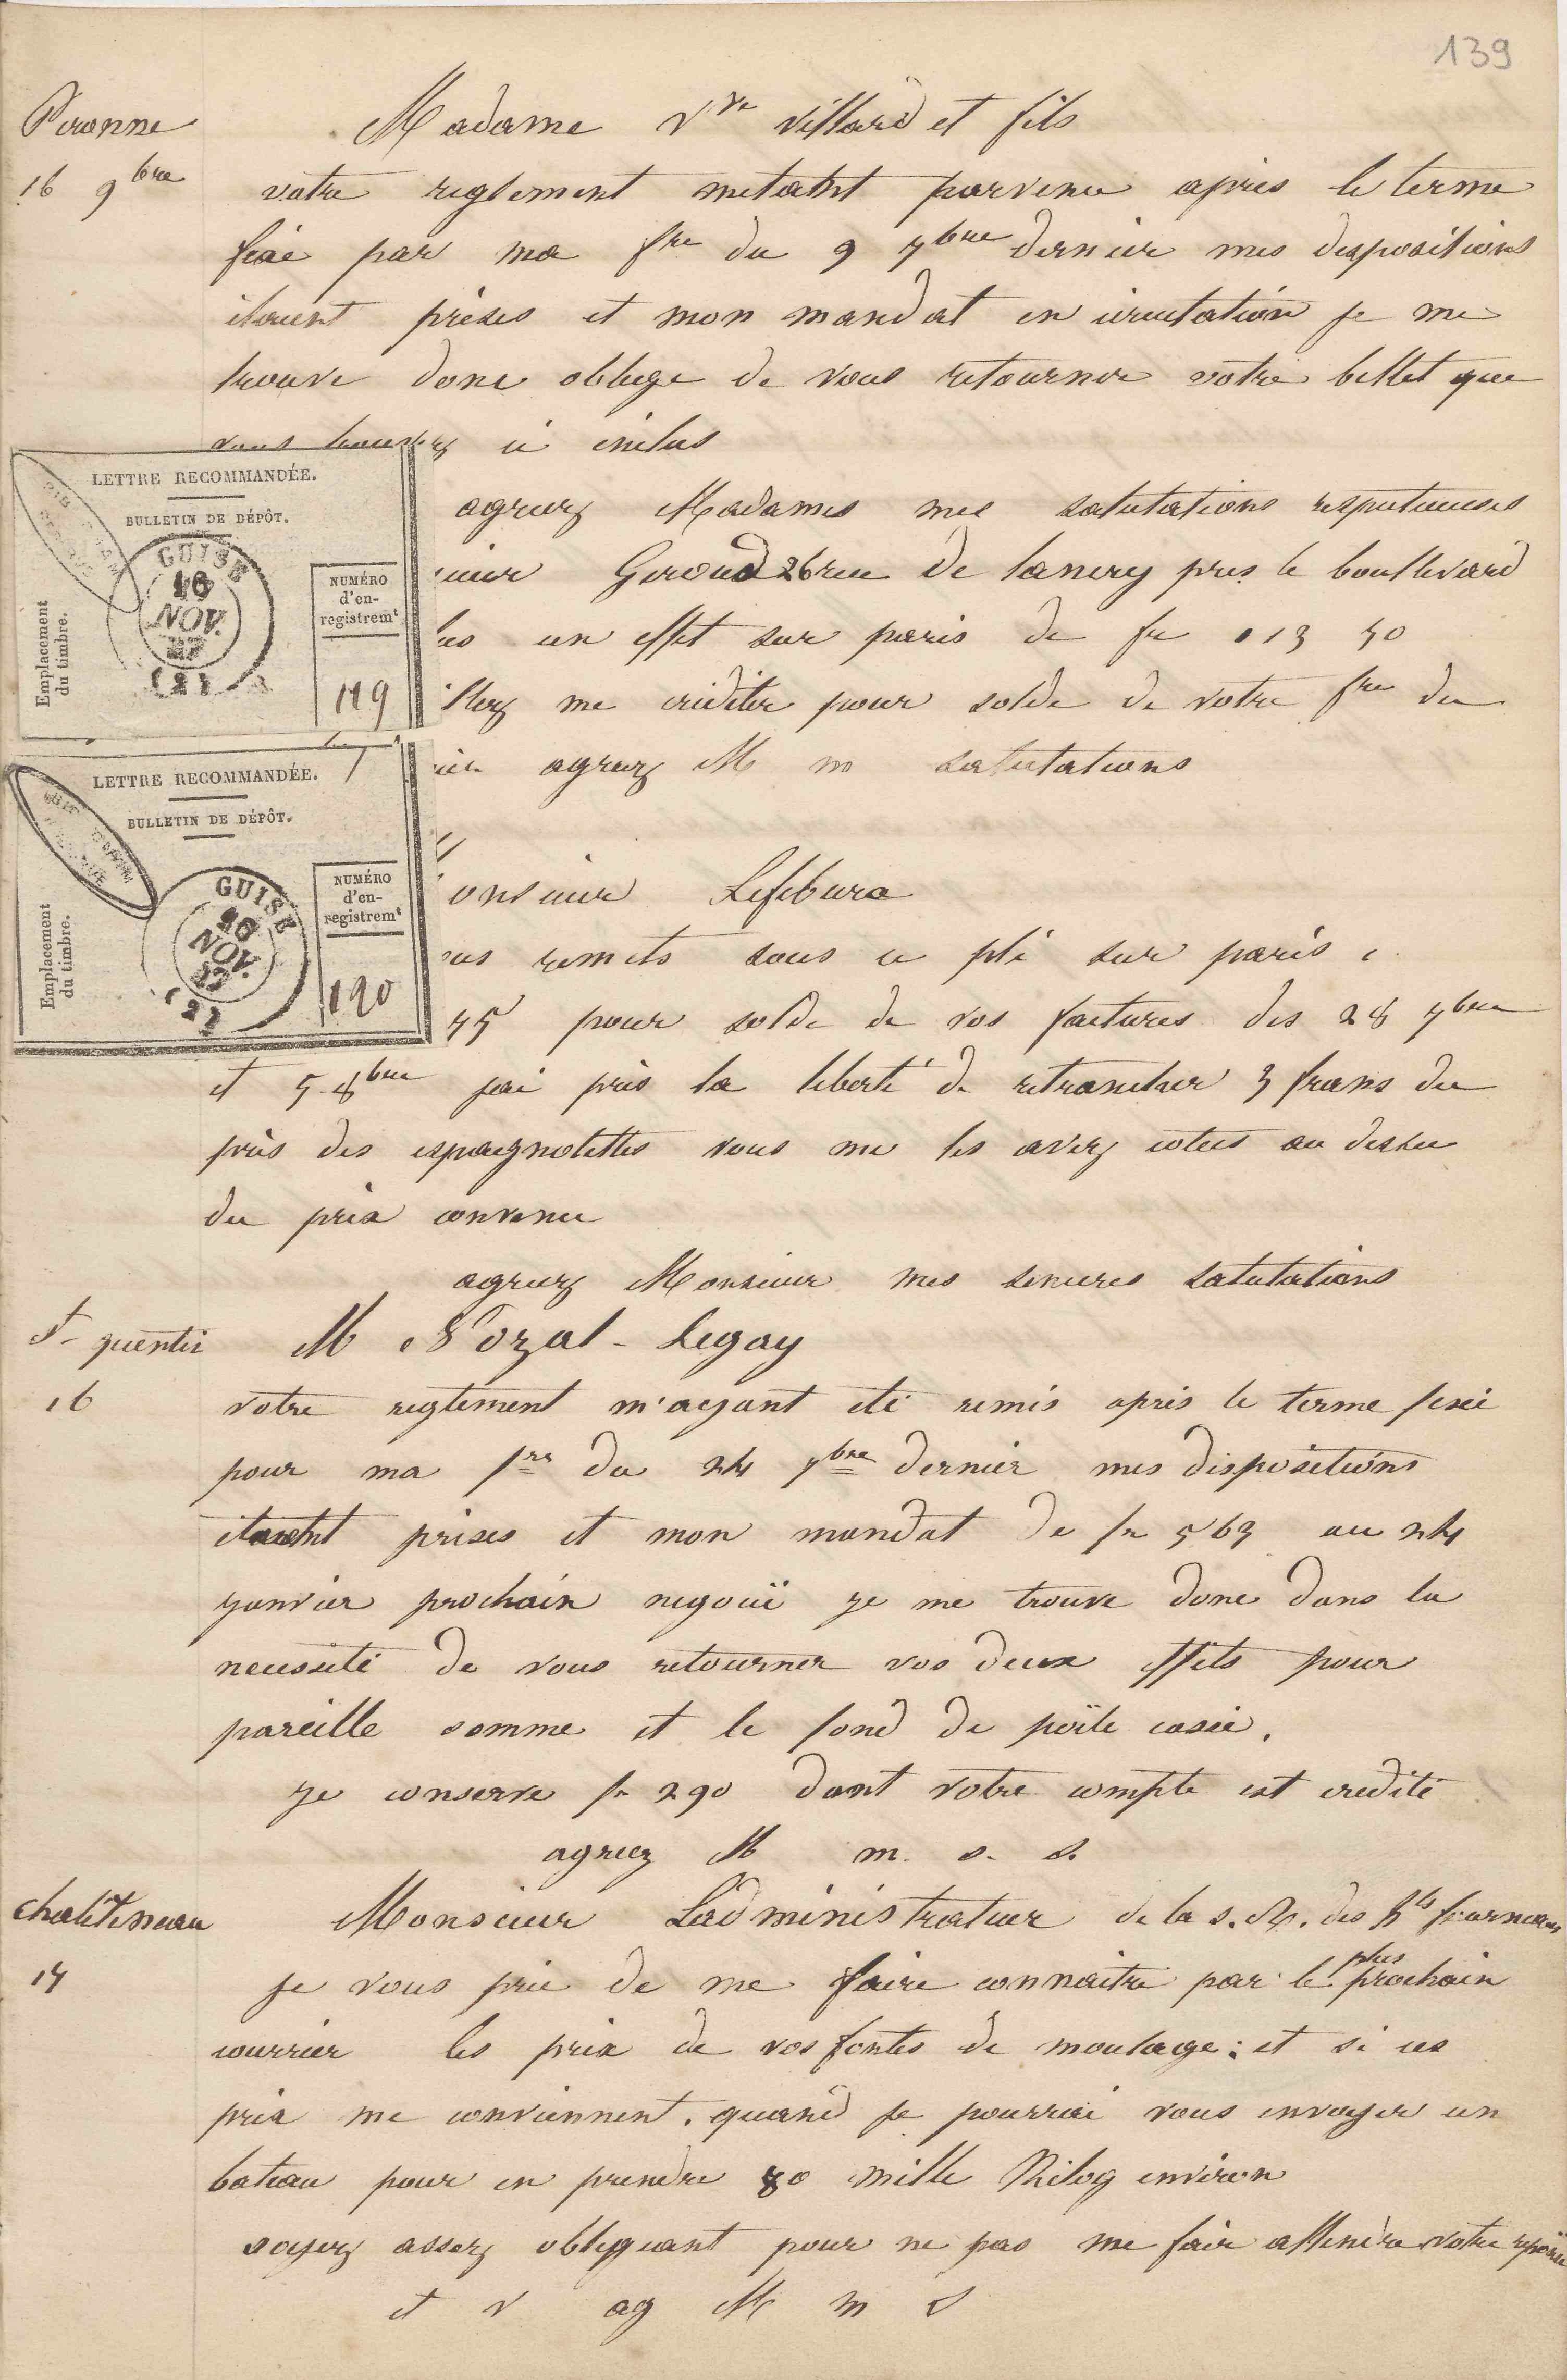 139
Peronne
Madame Vve Villard et fils
16 9bre
votre reglement metatnt parvenu apres le terme
fixé par ma fre du 9 7bre dernier mes dispositions
étaient prises et mon mandat en circulation je me
trouve donc obligé de vous retourner votre billet que
vous trouverez ci inclus
agreez Madames mes salutations respectueuses
ieur Geroud 26 rue de Lancry pres le boullevard
us un effet sur paris de fr 113 50
illez me créditer pour solde de votre fre du
ier agreez M m salutations
LETTRE RECOMMANDÉE.
BULLETIN DE DÉPÔT.
GUISE
16
NOV.
57
(2)
Emplacement
du timbre.
NUMÉRO
d'en-
registremt
119
LETTRE RECOMMANDÉE.
BULLETIN DE DÉPÔT.
GUISE
16
NOV.
57
(2)
Emplacement
du timbre.
NUMÉRO
d'en-
registremt
120
onsieur Lefebure
us remets sous ce pli sur paris
45 pour solde de vos factures des 28 7bre
et 5 8bre jai pris la liberté de retrancher 3 frans du
prix des espagnolettes vous me les avez cotees au dessu
du prix convenu
agreez Monsieur mes sinceres salutations
St quentin
M Nozal-Legay
16
votre reglement m'ayant été remis apres le terme fixé
pour ma fre du 24 7bre dernier mes dispositions
etaietnt prises et mon mandat de fr 563 au 24
janvier prochain negocié je me trouve donc dans la
necessité de vous retourner vos deux effets pour
pareille somme et le fond de poële cassé.
je conserve fr 290 dont votre compte est credité
agreez M m. s. s.
Chatelineau
Monsieur Ladministrateur de la S. A. des hts fourneaux
17
je vous prie de me faire connaitre par le plus prochain
courrier les prix de vos fontes de moulage; et si ces
prix me conviennent. quand je pourrai vous envoyer un
bateau pour en prendre 80 mille Kilog environ
soyez assez obligeant pour ne pas me faire attendre votre reponse
et v ag M m S